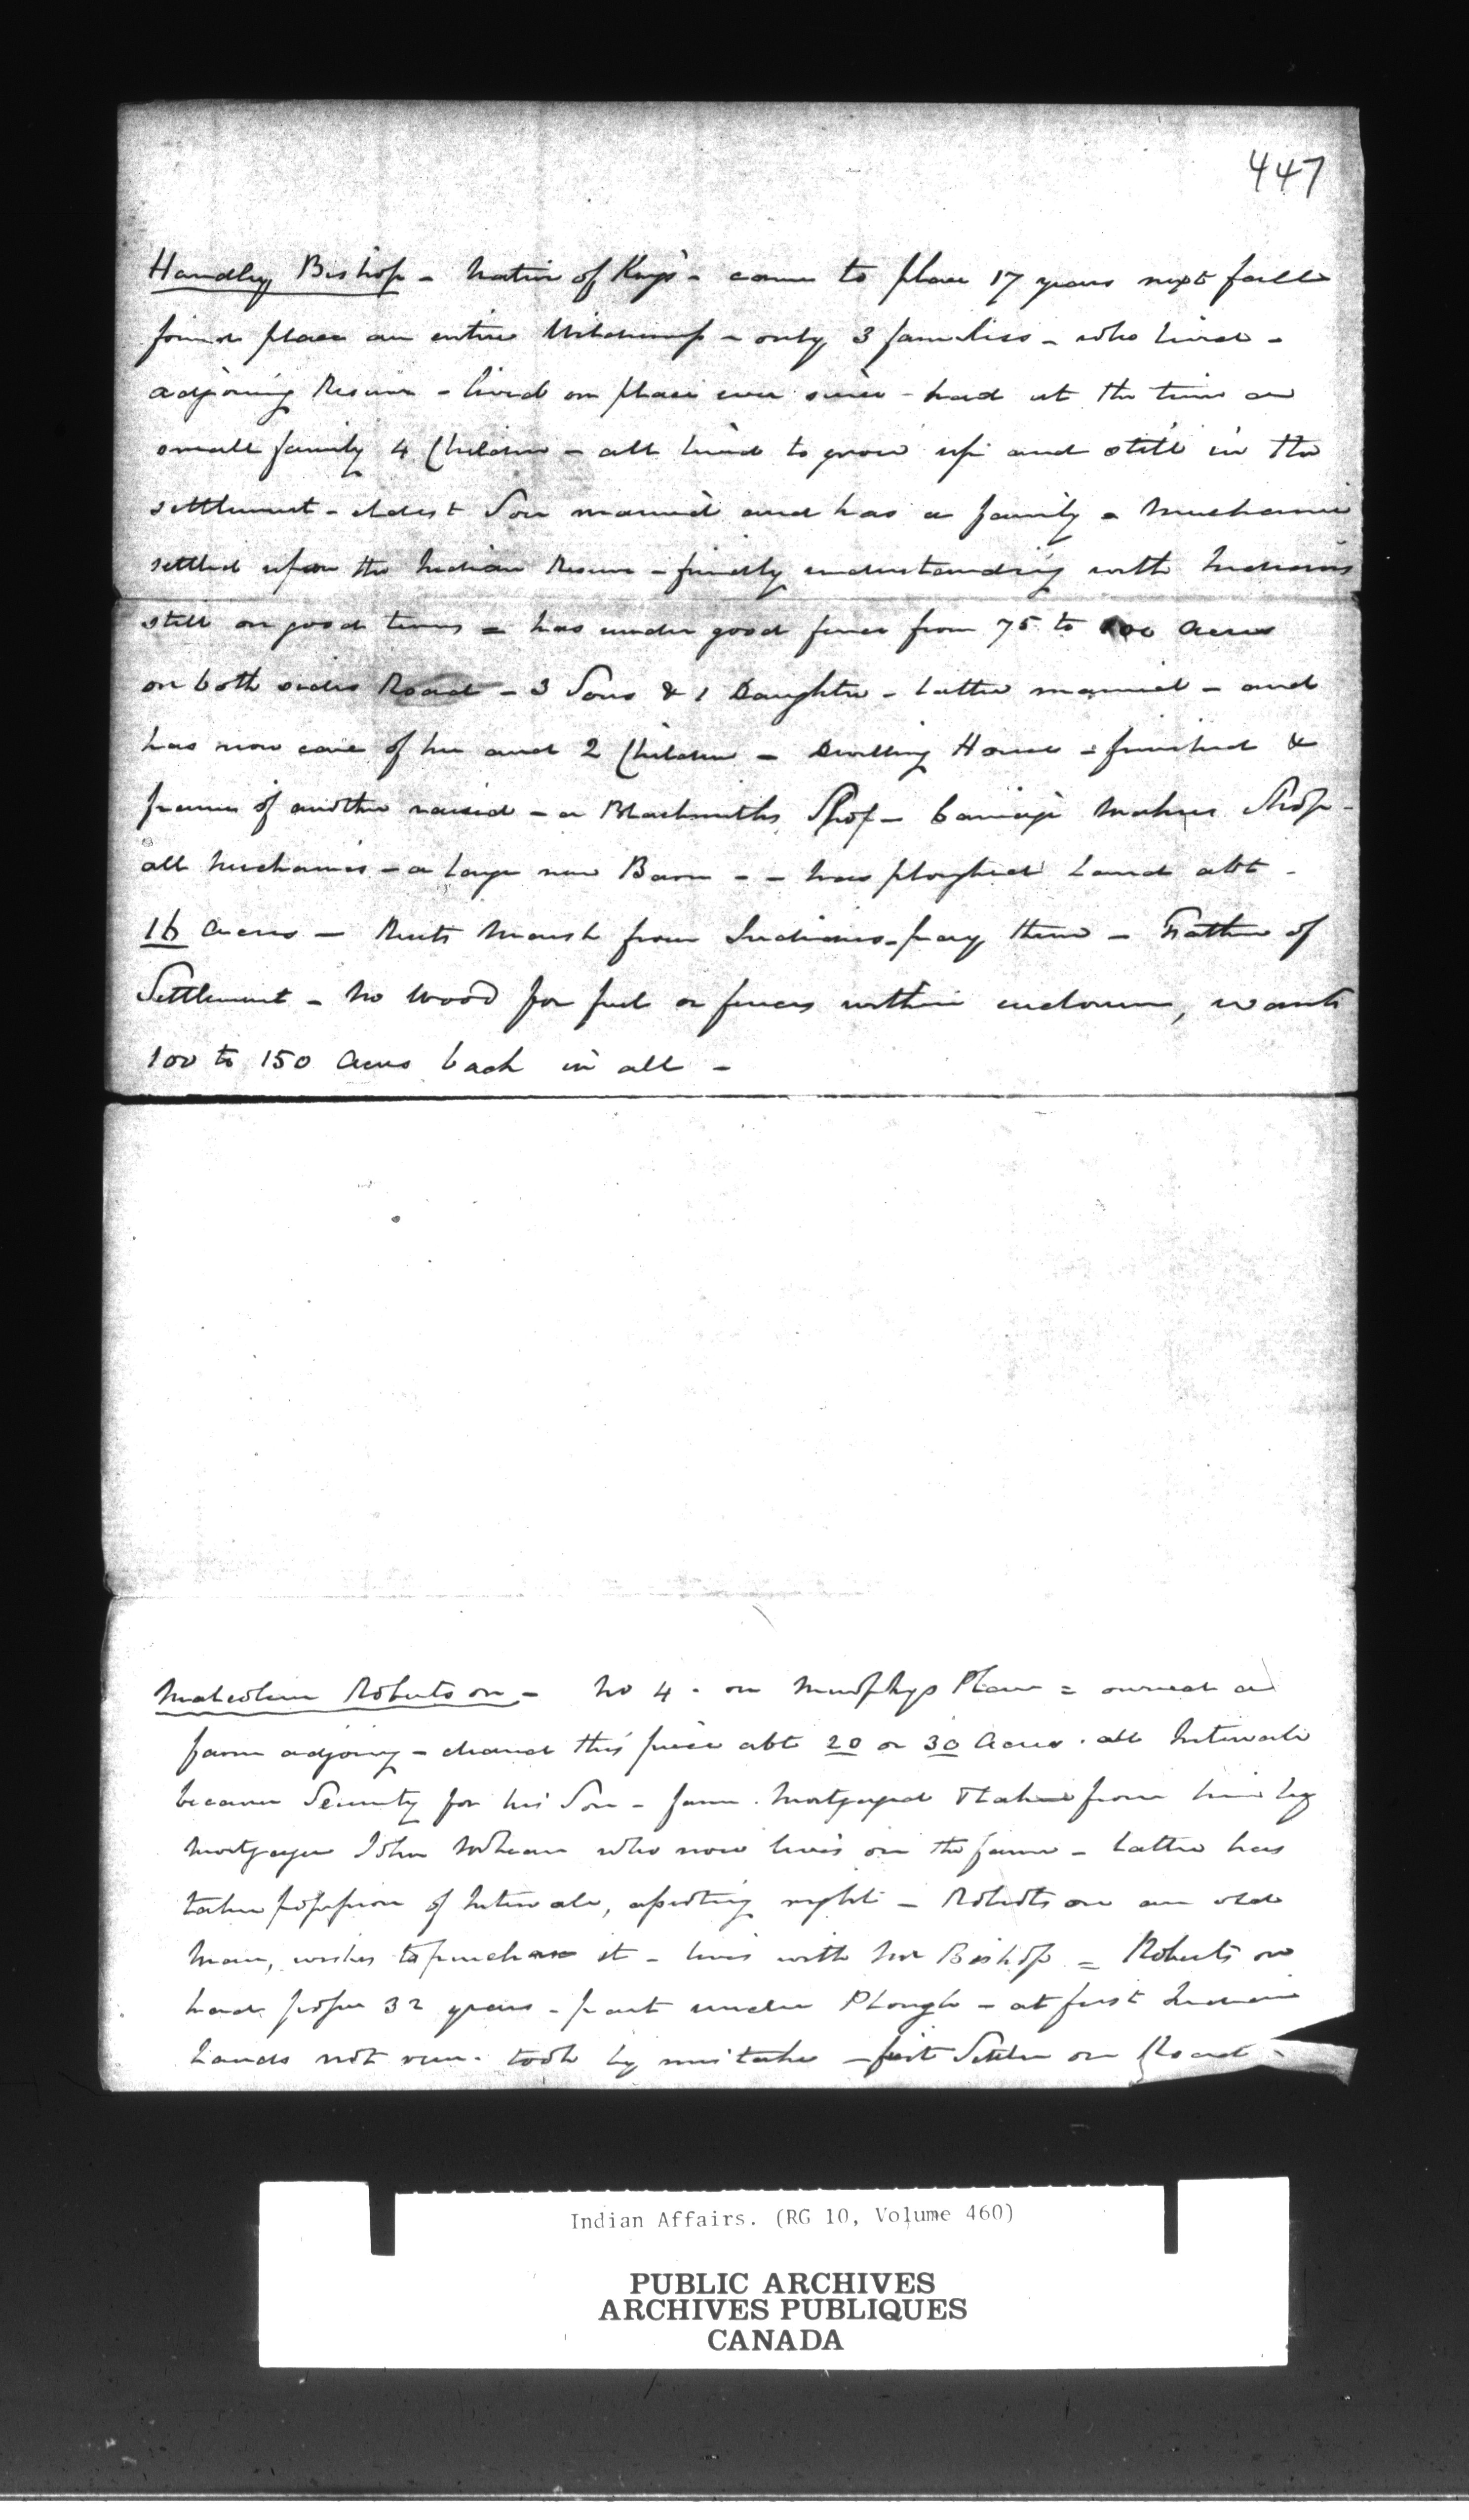 447
Handley Bishop - Native of Kings - came to place 17 years next fall
found place an entire Wilderness - only 3 families - who lived -
adjoining Reserve - lived on place ever since - had at the time a
small family 4 Children - all lived to grow up and still in the
settlement - eldest Son married and has a family - Mechanic
settled upon the Indian Reserve - friendly understanding with Indians
still on good terms - has under good fence from 75 to 100 Acres
on both sides Road - 3 Sons & 1 Daughter - latter married - and
has now care of her and 2 Children - Dwelling House - finished &
frame of another raised - a Blacksmiths Shop - Carriage Makers Shop -
all Mechanics - a large new Barn - - has ploughed Land abt -
16 Acres - Rents Marsh from Indians - pays them - Father of
Settlement - No Wood for fuel or fences within enclosure, wants
100 to 150 Acres back in all -
Malcolm Robertson - No 4 - on Murphys Plan = owned a
farm adjoing - cleared this piece abt 20 or 30 Acres. all Intervale
became Security for his Son - farm Mortgaged & taken from him by
Mortgagee John McLean who now lives on the farm - latter has
taken possession of Intervale, asserting right - Robertson an old
Man, wishes to purchase it - lives with Mr Bishop = Robertson
had possn 32 years - part under Plough - at first Indian
Lands not run - took by mistake - first Settler on Road -
Indian Affairs. (RG 10, Volume 460)
PUBLIC ARCHIVES
ARCHIVES PUBLIQUES
CANADA